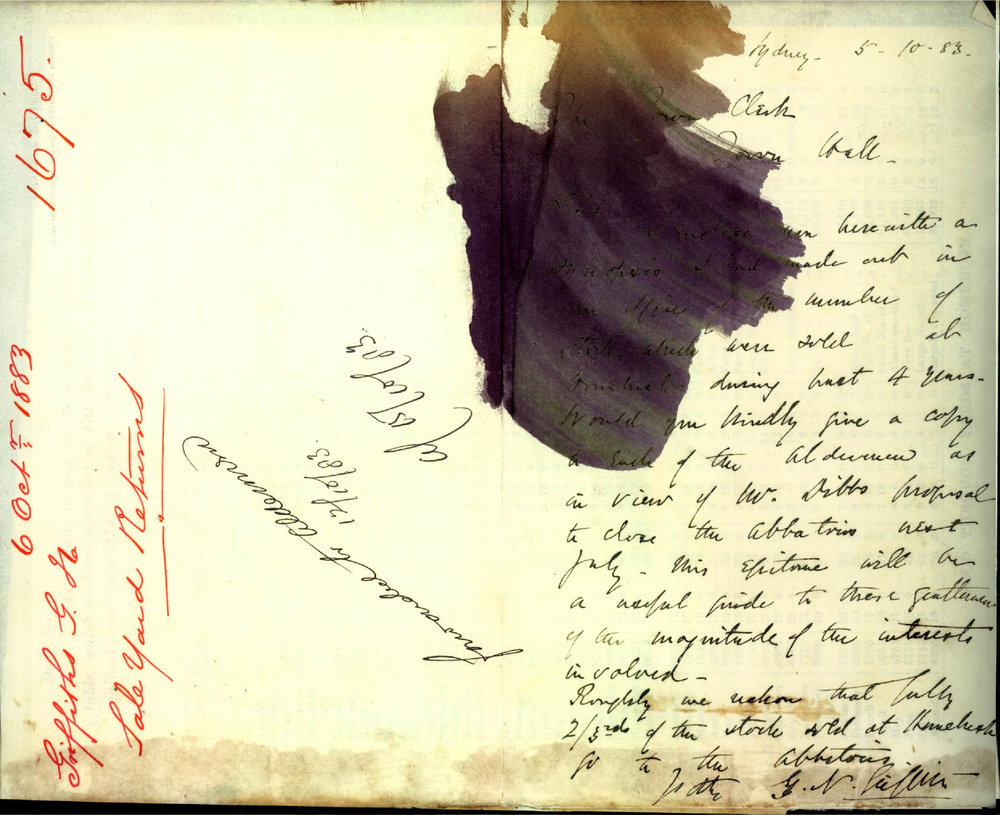 1675.
6 Octr 1883
Griffiths G. N
Sale Yard Returns
forwarded to Aldermen
17/10/83.
15/10/83.
Sydney. 5-10-83.
The Town Clerk
Town Hall.
you herewith a
synopsis I had made out in
my office of the number of
stock which were sold at
Homebush during past 4 years.
Would you kindly give a copy
to each of the Aldermen as
in view of Mr. Dibbs proposal
to close the abbatoirs next
July. This Epitome will be
a useful guide to these gentlemen
of the magnitude of the interests
involved.
Roughly we reckon that fully
2/3rds of the stock sold at Homebush
go to the abbatoirs.
G. N. Griffiths